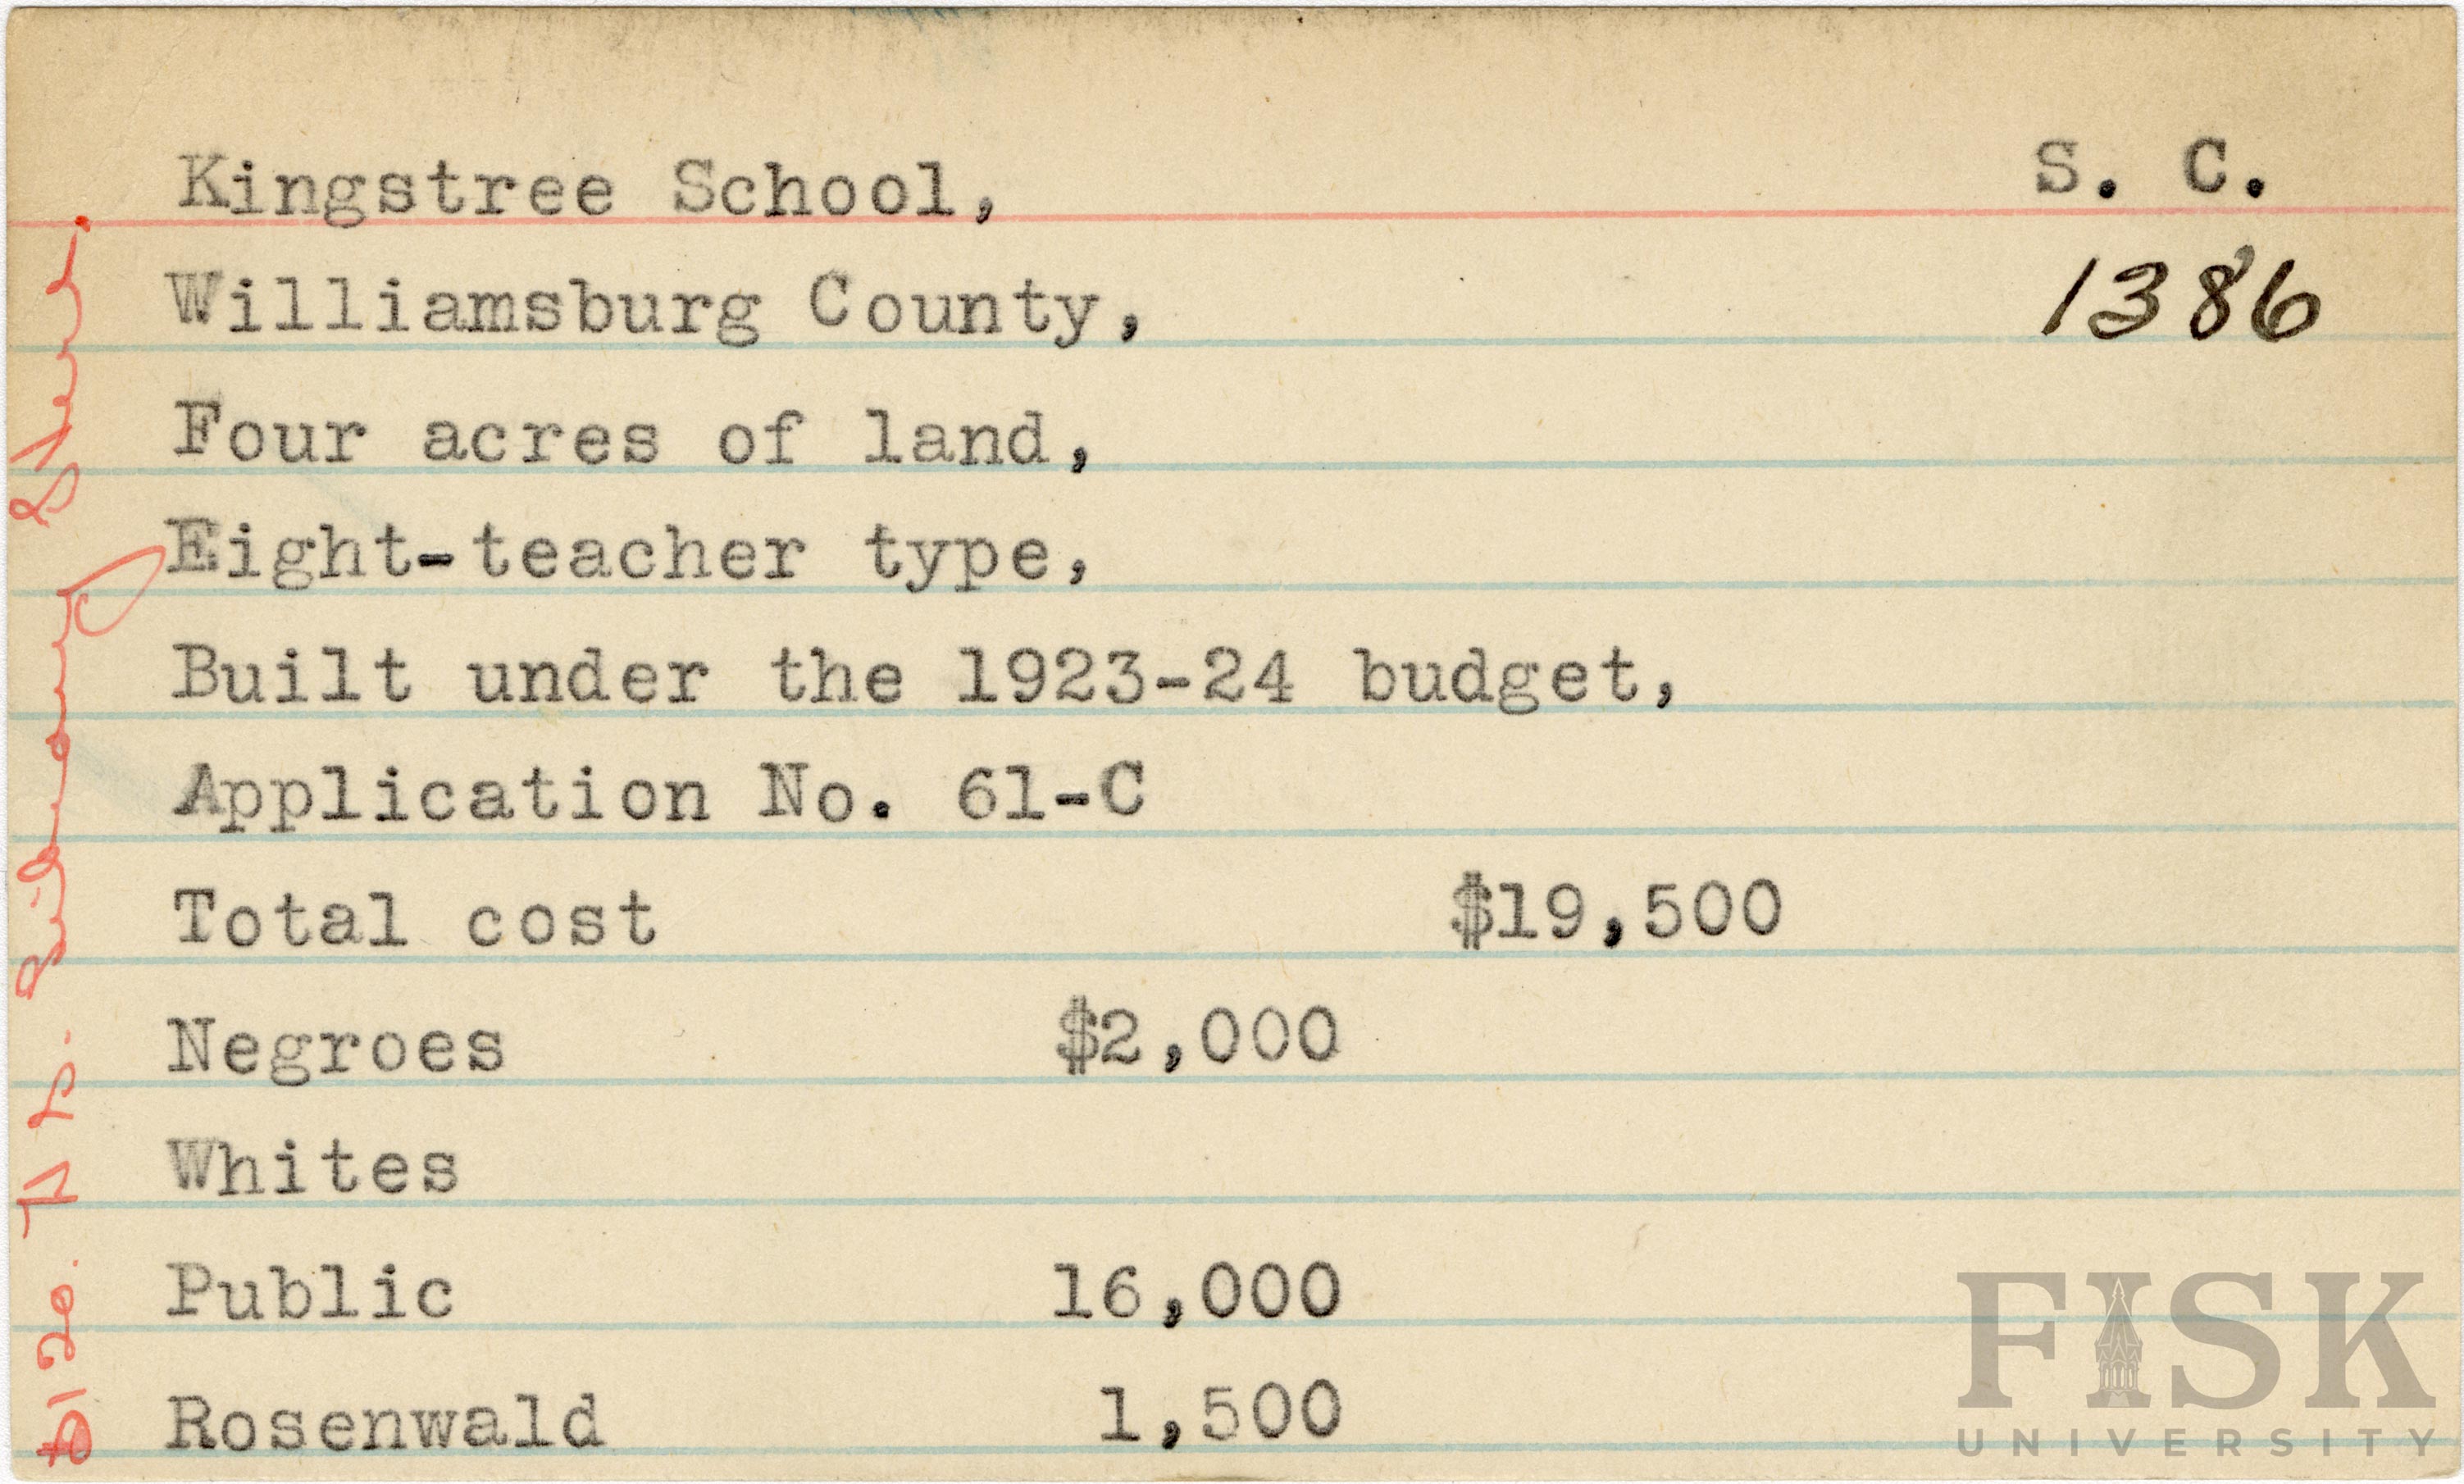 Kingstree School, S. C.
Williamsburg County, 1386
Four acres of land,
Eight-teacher type,
Built under the 1923-24 budget,
Application No. 61-C
Total cost $19,500
Negroes $2,000
Whites
Public 16,000
Rosenwald 1,500
$120. Library
FISK
UNIVERSITY